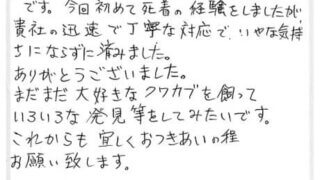 です。今回初めて死着の経験をしましたが、
貴社の迅速で丁寧な対応で、いやな気持
さにならずに済みました。
ありがとうございました。
まだまだ大好きなクワカブを飼って
いろいろな発見等をしてみたいです。
これからも宜しくおつきあいの程
お願い致します。